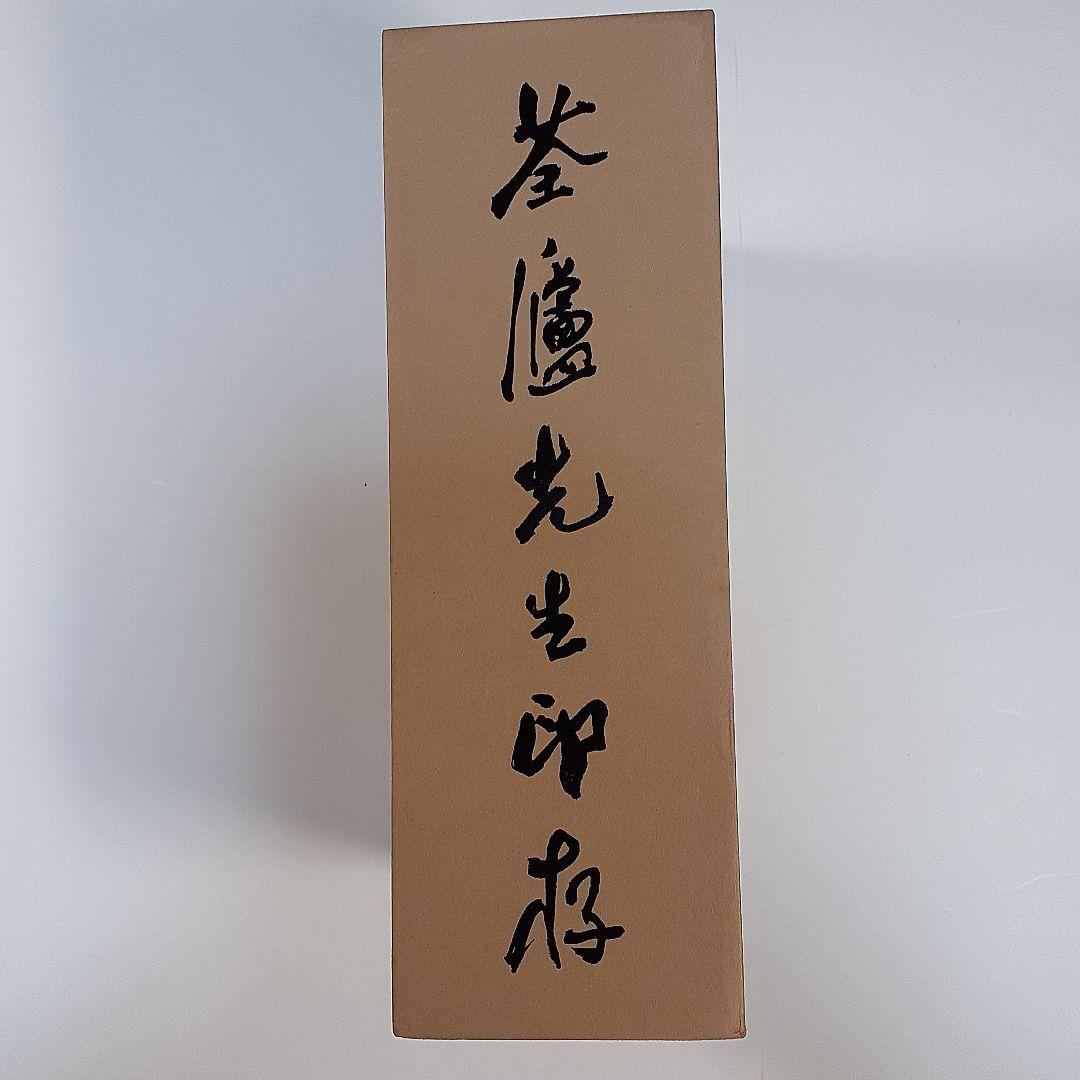 荃廬先生印存